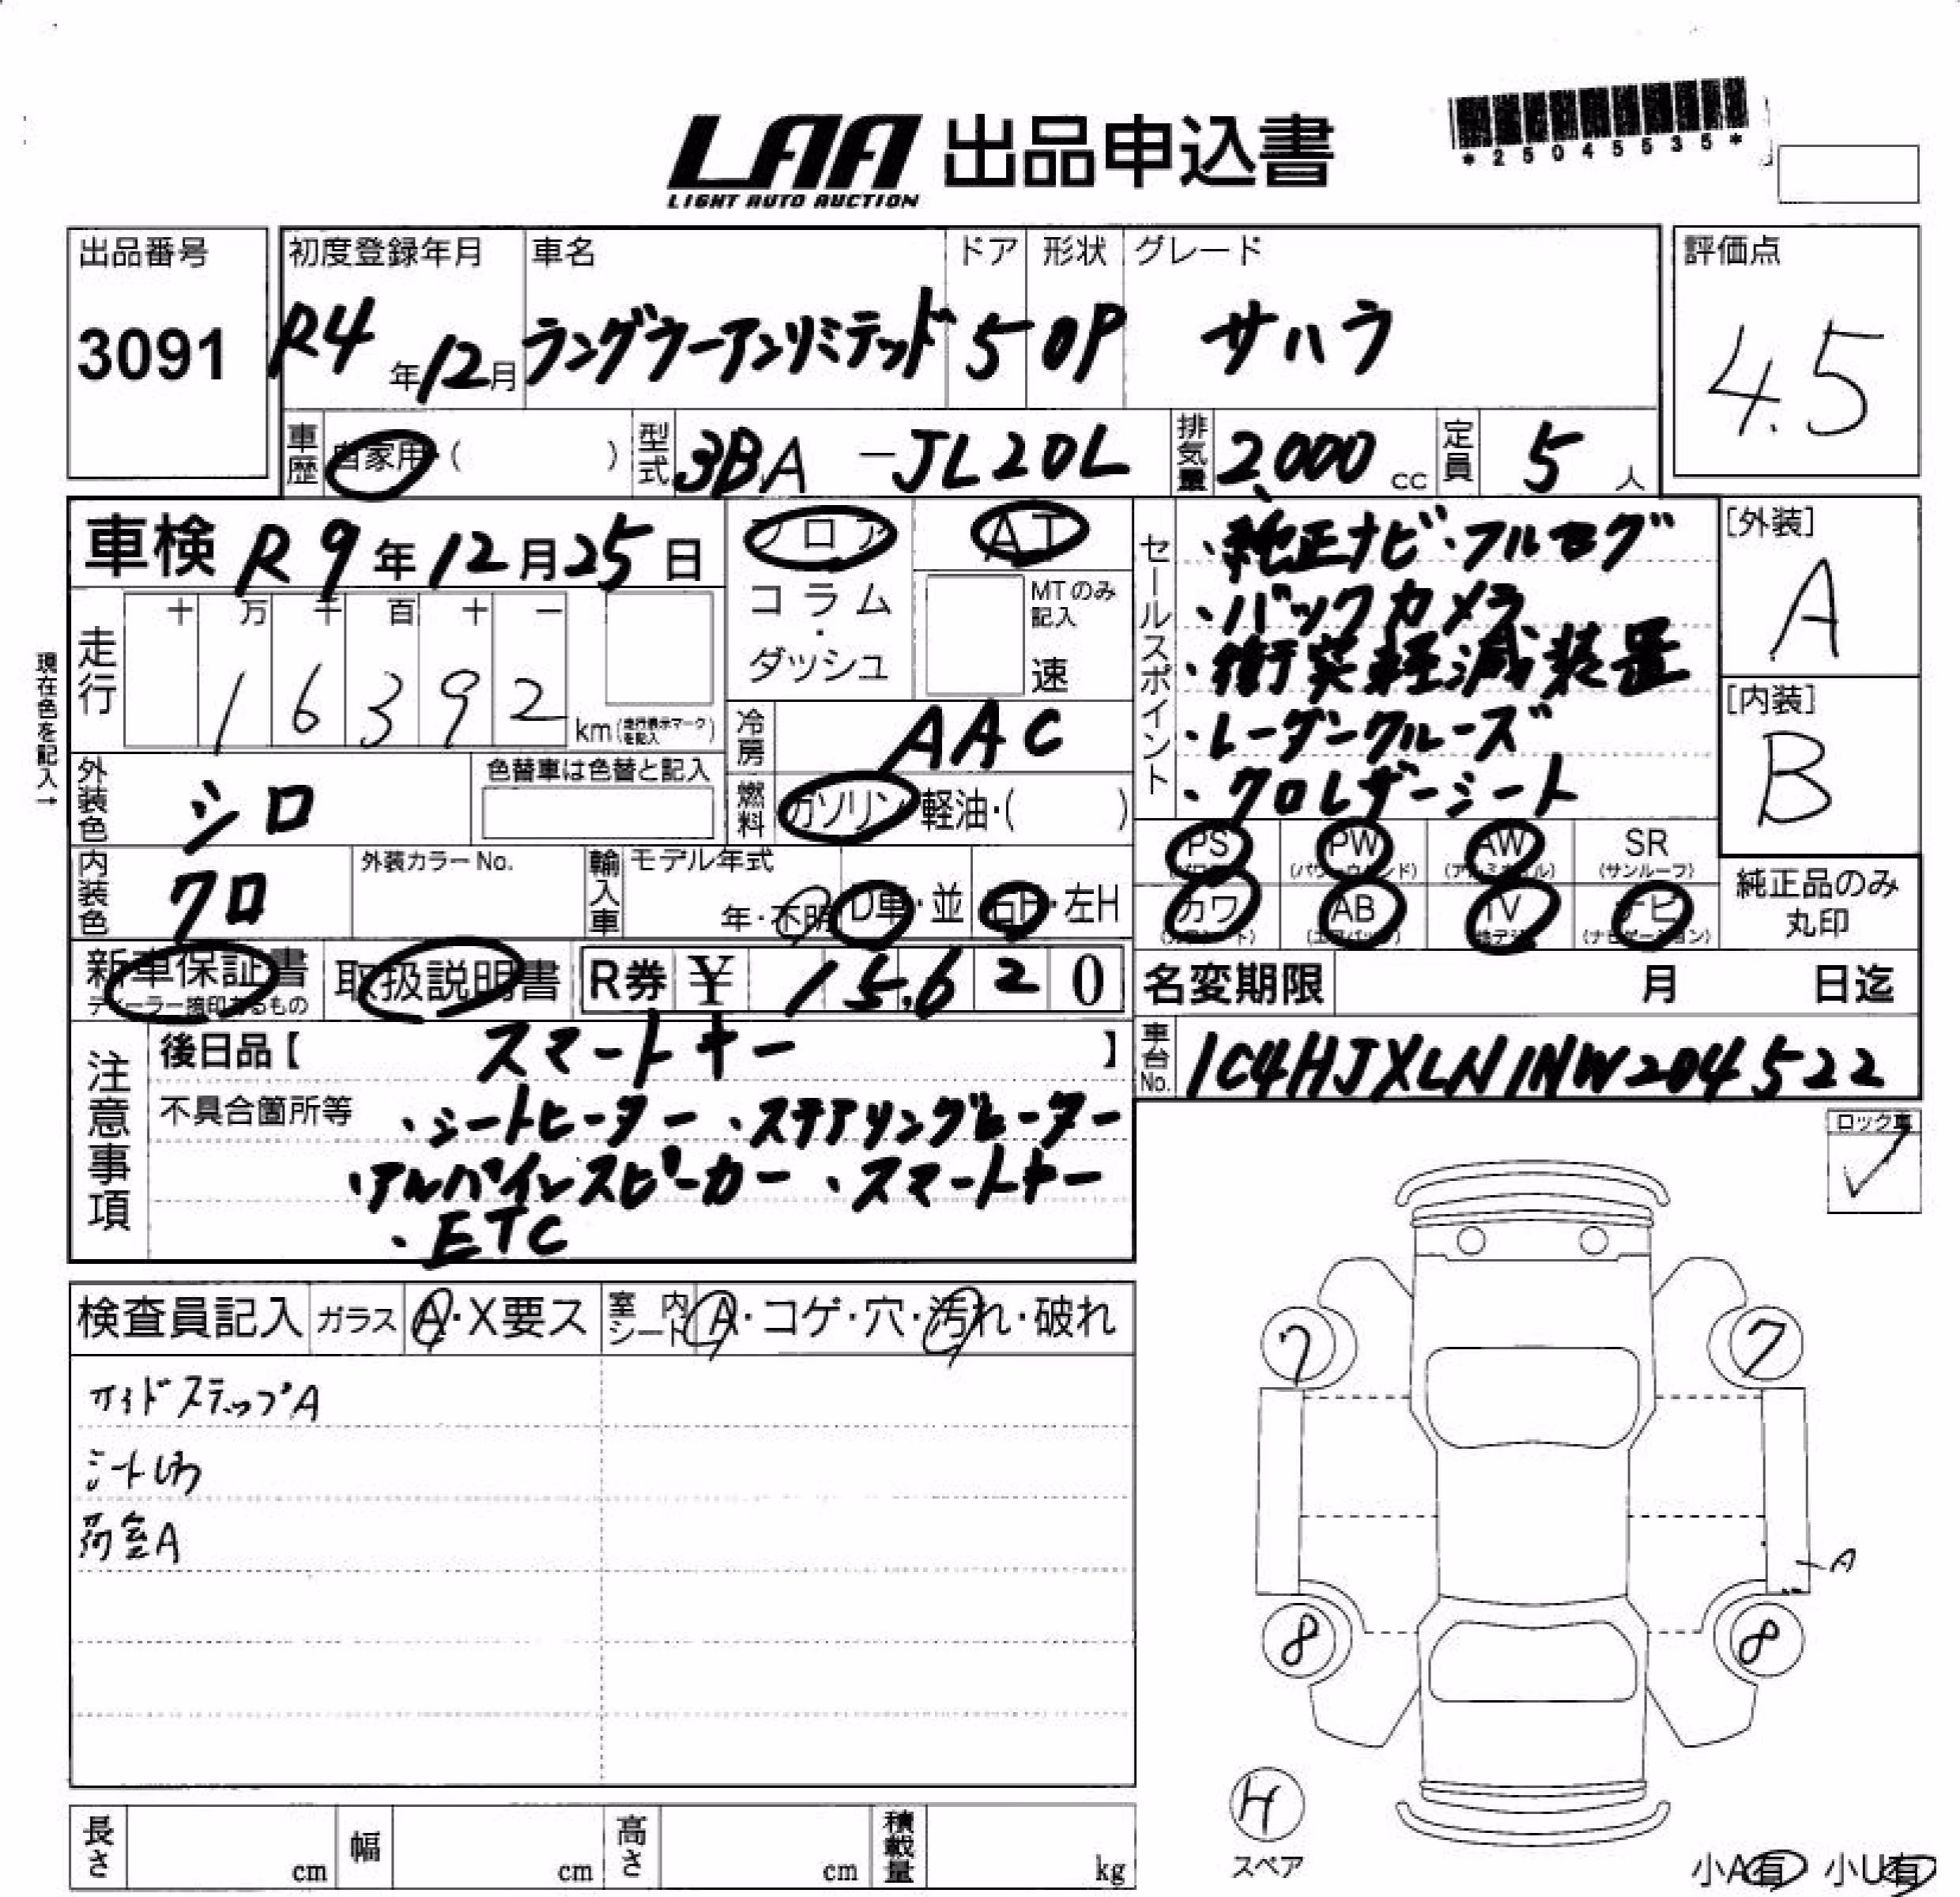 LAA 出品申込書
LIGHT AUTO AUCTION
*25045535*
出品番号
3091
初度登録年月 車名 ドア 形状 グレード
R4年12月 ラングラーアンリミテッド 5 OP サハラ
評価点
4.5
車歴 自家用・( ) 型式 3BA-JL20L 排気量 2,000 cc 定員 5人
車検 R9年12月25日
フロア AT
コラム・ダッシュ
MTのみ記入
速
現在色を記入→
走行 十 万 千 百 十 一
16392 km (走行表示マークを記入)
冷房 AAC
外装色 シロ 色替車は色替と記入
燃料 ガソリン・軽油・( )
内装色 クロ 外装カラーNo.
輸入車 モデル年式
年・不明 D車・並 右H・左H
セールスポイント
・純正ナビ・フルセグ
・バックカメラ
・衝突軽減装置
・レーダークルーズ
・クロレザーシート
[外装]
A
[内装]
B
PS PW AW SR
(パワーウインド) (サンルーフ)
カワ AB TV ナビ
(エアバッグ) (地デジ) (ナビゲーション)
純正品のみ丸印
新車保証書
ディーラー捺印あるもの
取扱説明書
R券 ¥ 15,620
名変期限 月 日迄
車台No. 1C4HJXLN1NW204522
注意事項
後日品【 スマートキー 】
不具合箇所等 ・シートヒーター ・ステアリングヒーター
・アルパインスピーカー ・スマートキー
・ETC
ロック車
✓
検査員記入 ガラス A・X要ス 室内シート A・コゲ・穴・汚れ・破れ
サイドステップA
シートしわ
荷室A
7 7
A
8 8
H
スペア
小A有 小U有
長さ cm 幅 cm 高さ cm 積載量 kg